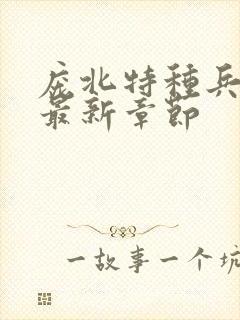 庞北特種兵
最新章節
一故事一个坑